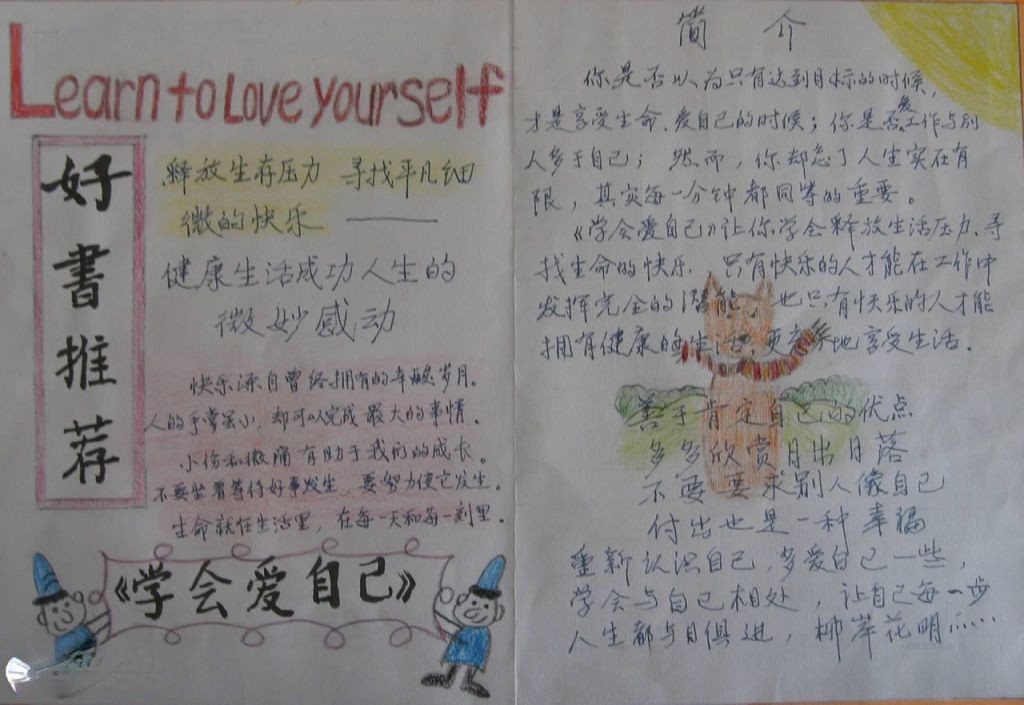 Learn to Love yourself
好書推荐
释放生存压力 寻找平凡细
微的快乐——
健康生活成功人生的
微妙感动
快乐源自曾经拥有的辛酸岁月。
人的手掌虽小，却可以完成最大的事情。
小伤和微痛有助于我们的成长。
不要坐着等待好事发生，要努力使它发生。
生命就在生活里，在每一天和每一刻里。
《学会爱自己》
简 介
你是否以为只有达到目标的时候，
才是享受生命、爱自己的时候；你是否爱工作与别
人多于自己；然而，你却忘了人生实在有
限，其实每一分钟都同等的重要。
《学会爱自己》让你学会释放生活压力、寻
找生命的快乐。只有快乐的人才能在工作中
发挥完全的潜能，也只有快乐的人才能
拥有健康的生活，更 地享受生活。
善于肯定自己的优点
多多欣赏月出日落
不要要求别人像自己
付出也是一种幸福
重新认识自己，多爱自己一些，
学会与自己相处，让自己每一步
人生都与日俱进，柳岸花明……